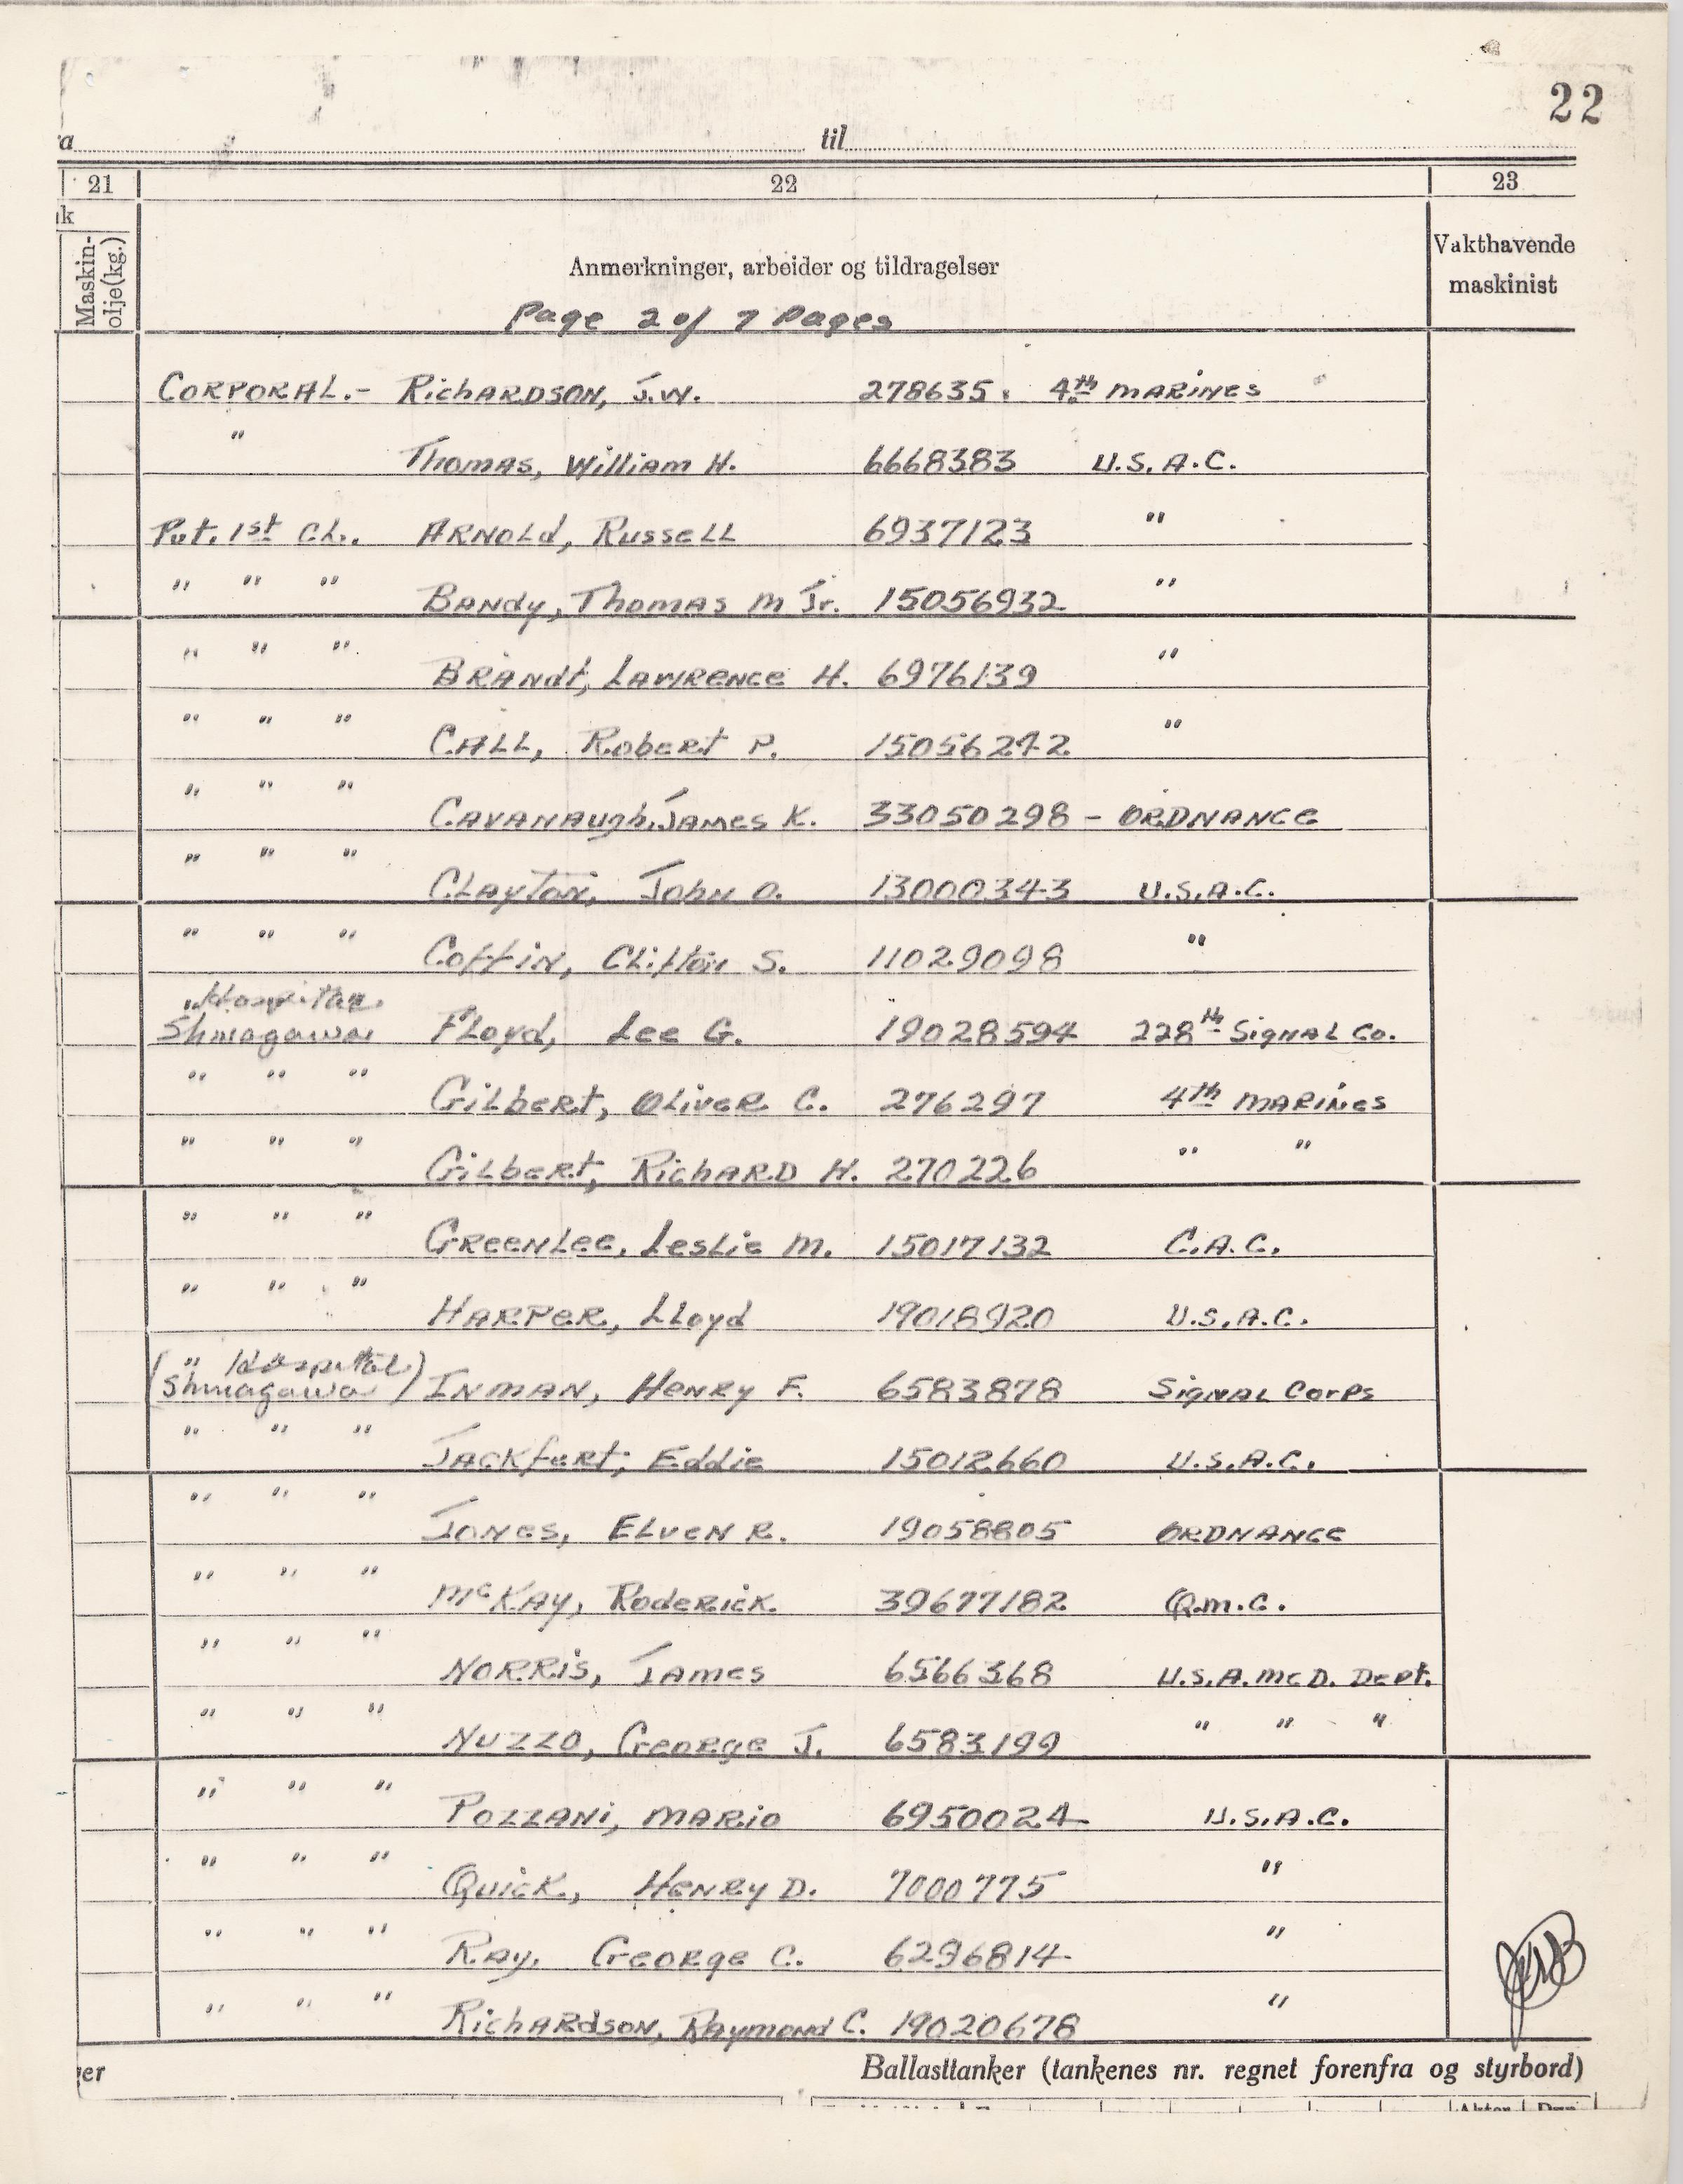 22
ra til
21 22 23
ik
Maskin-
olje(kg.)
Anmerkninger, arbeider og tildragelser
Vakthavende
maskinist
Page 2 of 7 Pages
CORPORAL.- RichARDSON, J.W. 278635. 4th MARINES
" Thomas, William H. 6668383 U.S.A.C.
Pvt. 1st CL. ARNOLd, RusseLL 6937123 "
" " " BANdy, Thomas M Jr. 15056932 "
" " " BRANdt, LAWRENCE H. 6976139 "
" " " CALL, Robert P. 15056242 "
" " " CAVANAUgh, JAMES K. 33050298 - ORDNANCE
" " " CLAYTON, John O. 13000343 U.S.A.C.
" " " Coffin, Clifton S. 11029098 "
" Hospital
Shinagawa FLoyd, Lee G. 19028594 228th SigNAL Co.
" " " GiLbERt, OLiVER C. 276297 4th MARINES
" " " GiLbERt, RichARD H. 270226 " "
" " " GREENLEE, LESLiE M. 15017132 C.A.C.
" " " HARPER, LLoyd 19018920 U.S.A.C.
( " Hospital )
Shinagawa INMAN, HENRY F. 6583878 SigNAL CORPS
" " " JACKfERt, Eddie 15012660 U.S.A.C.
" " " JONES, ELVEN R. 19058805 ORDNANCE
" " " McKAY, RodERiCK. 39677182 Q.M.C.
" " " NORRIS, JAMES 6566368 U.S.A. MED. DEPT.
" " " NUZZO, GEORGE J. 6583199 " " "
" " " POZZANi, MARiO 6950024 U.S.A.C.
" " " QuiCK, HENRY D. 7000775 "
" " " RAY, GEORGE C. 6296814 "
" " " RiChARdSON, RAymond C. 19020678 "
ger Ballasttanker (tankenes nr. regnet forenfra og styrbord)